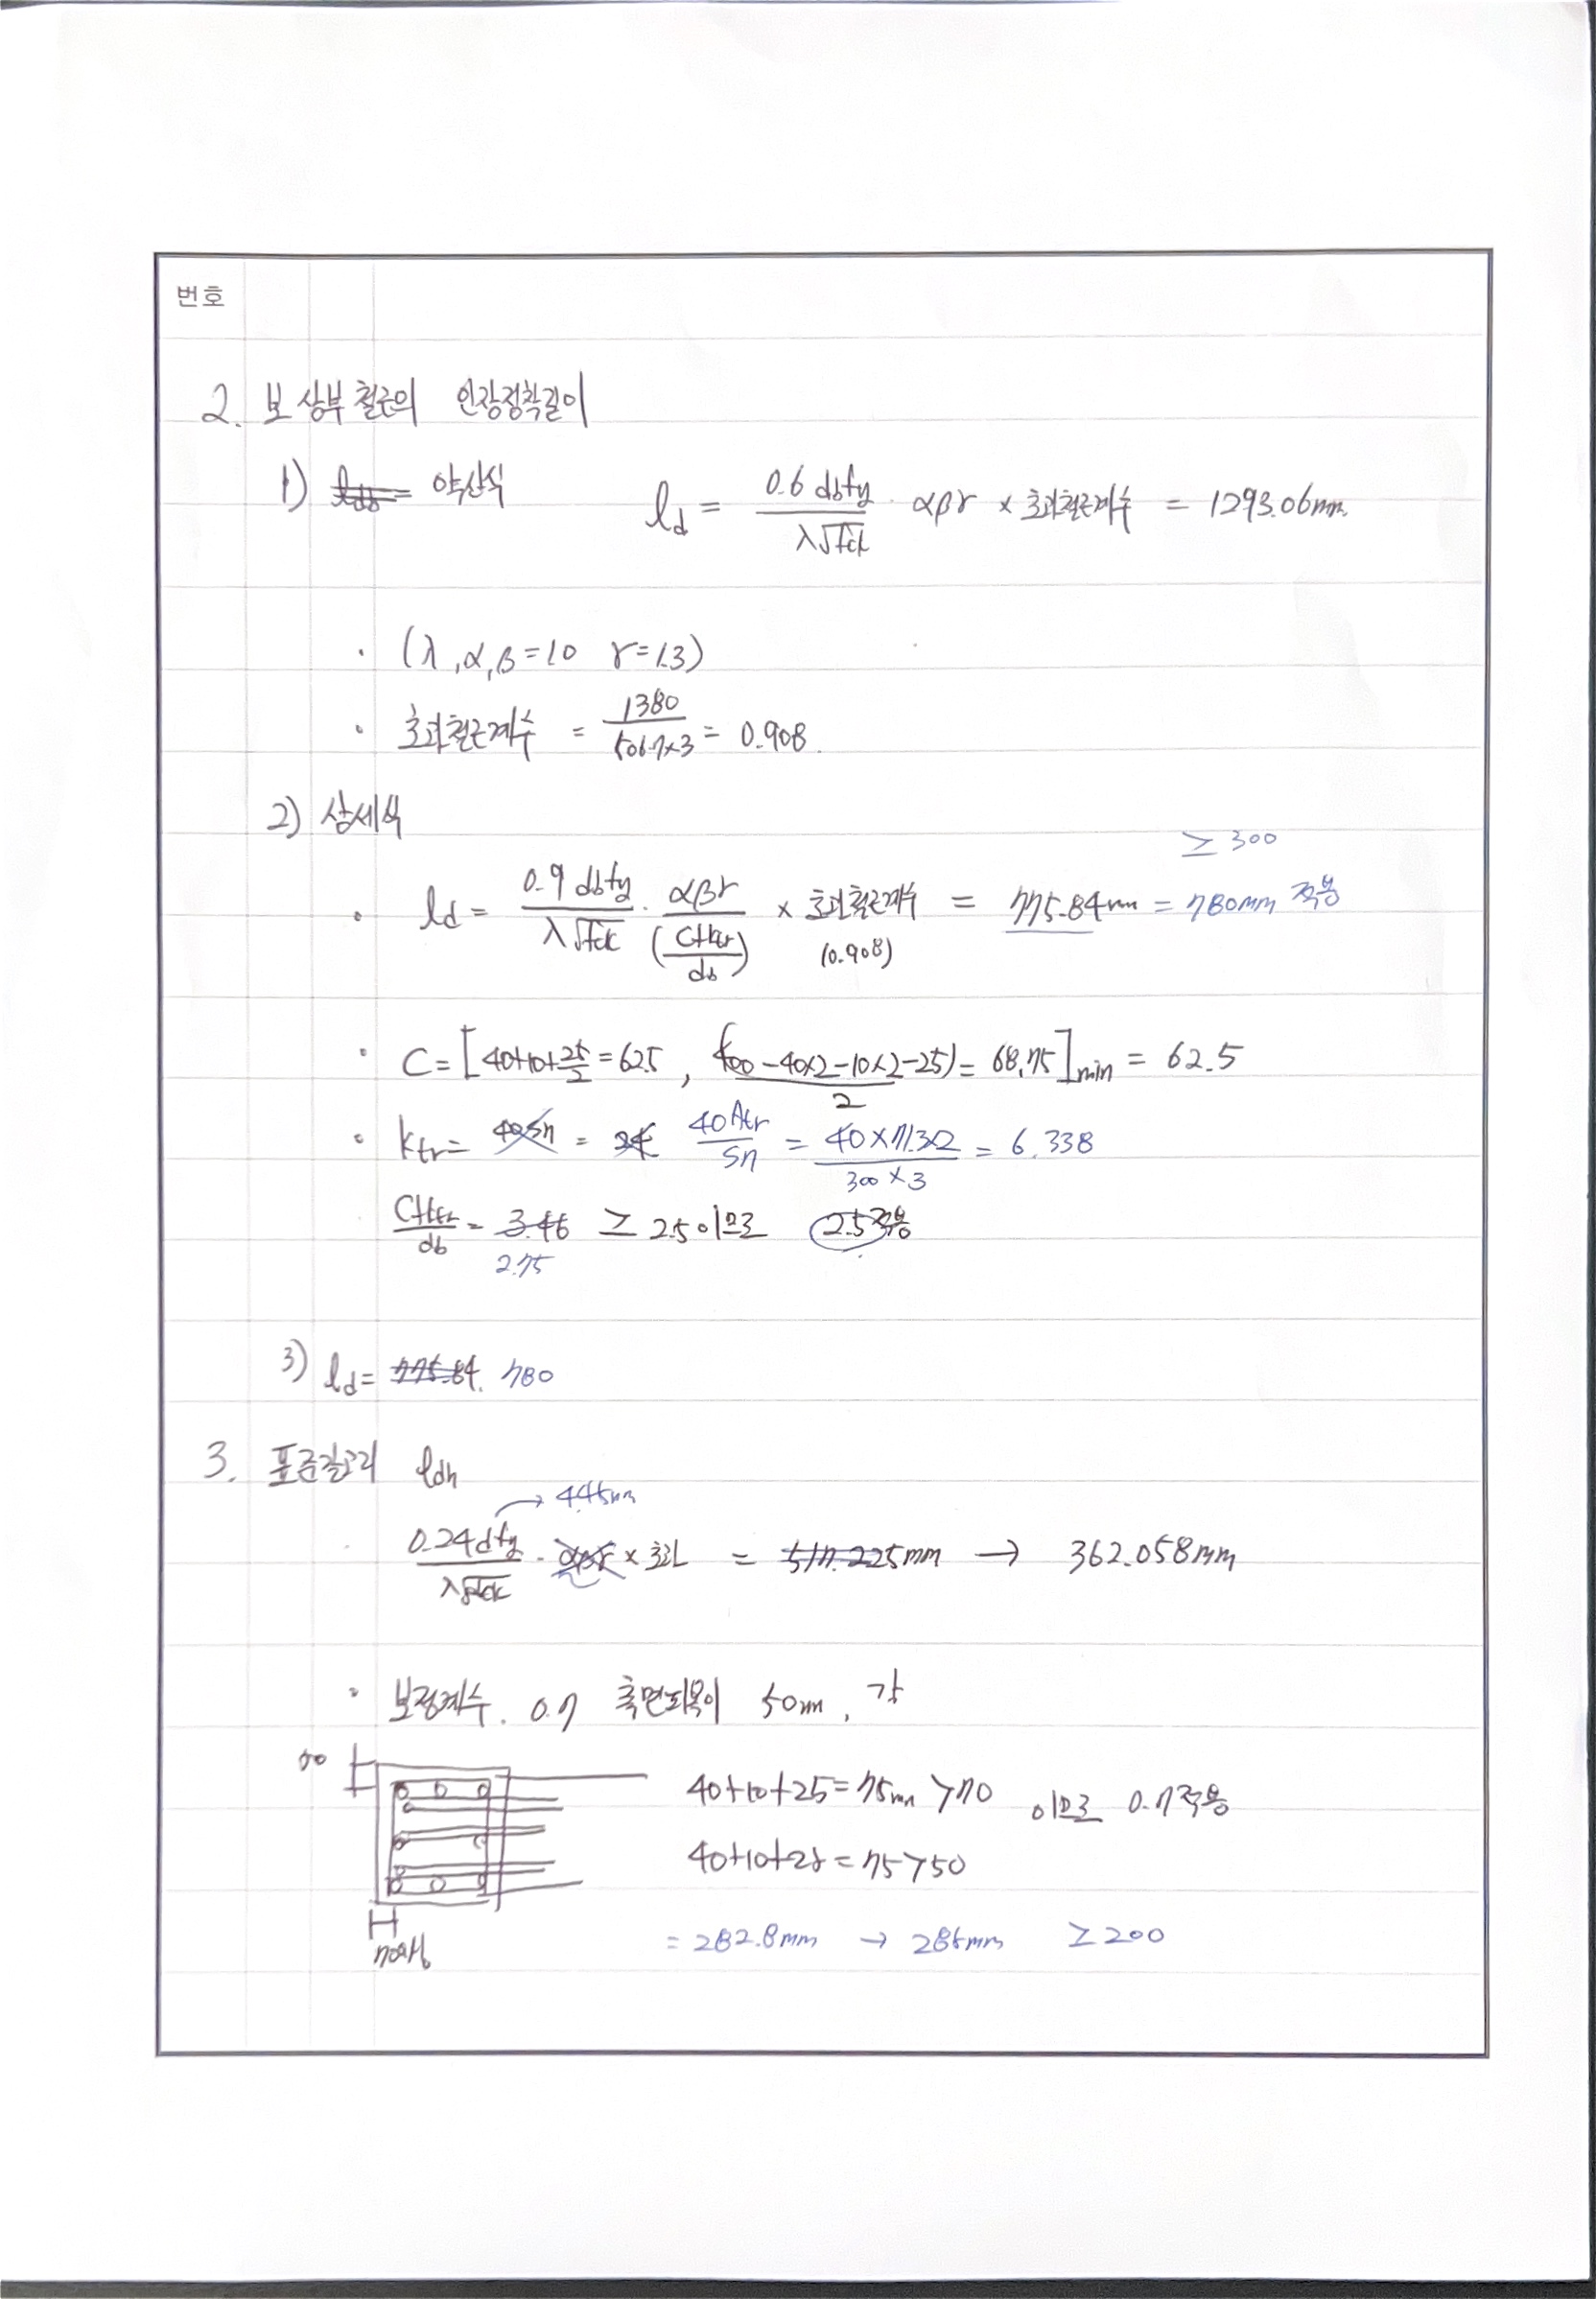 번호
2. 보 상부 철근의 인장정착길이
1) 약산식 ld = 0.6 db fy / λ√fck · αβγ × 초과철근계수 = 1293.06mm
· (λ, α, β = 1.0 γ = 1.3)
· 초과철근계수 = 1380 / 506.7×3 = 0.908
2) 상세식
≥ 300
· ld = 0.9 db fy / λ√fck · αβγ / (C+ktr / db) × 초과철근계수 (0.908) = 775.84mm = 780mm 적용
· C = [40+10+25/2 = 62.5, (400-40×2-10×2-25) / 2 = 68.75]min = 62.5
· ktr = 40Atr / sn = 40×71.3×2 / 300×3 = 6.338
C+ktr / db = 3.46 ≥ 2.5 이므로 2.5적용
2.75
3) ld = 775.84. 780
3. 표준갈고리 ldh
→ 445mm
0.24 d fy / λ√fck · αβγ × 초과 = 517.225mm → 362.058mm
· 보정계수. 0.7 측면피복이 50mm,
50
40+10+25 = 75mm > 70 이므로 0.7적용
40+10+25 = 75 > 50
= 282.8mm → 285mm ≥ 200
70이상